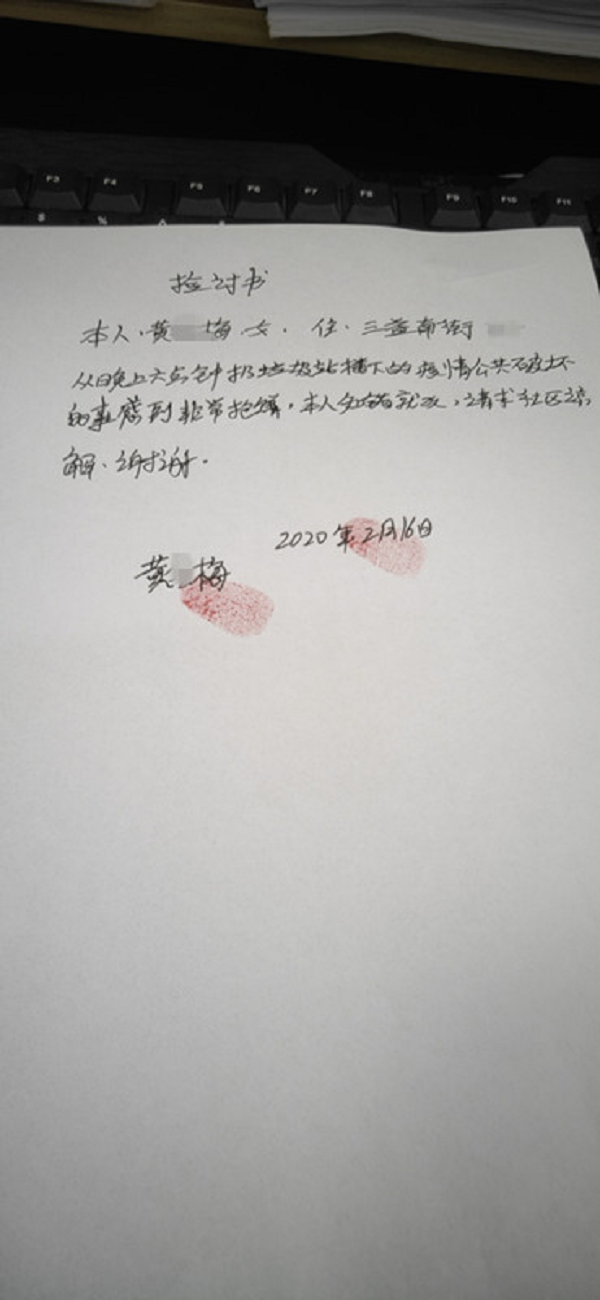 F3 F4 F5 F6 F7 F8 F9 F10 F11
$ %
检讨书
本人.黄 梅 女. 住.三益南街
从日晚上六点钟扔垃圾站墙下的疫情公共破坏
的事感到非常抱歉,本人知错就改,请求社区谅
解、谢谢.
2020年2月16日
黄 梅